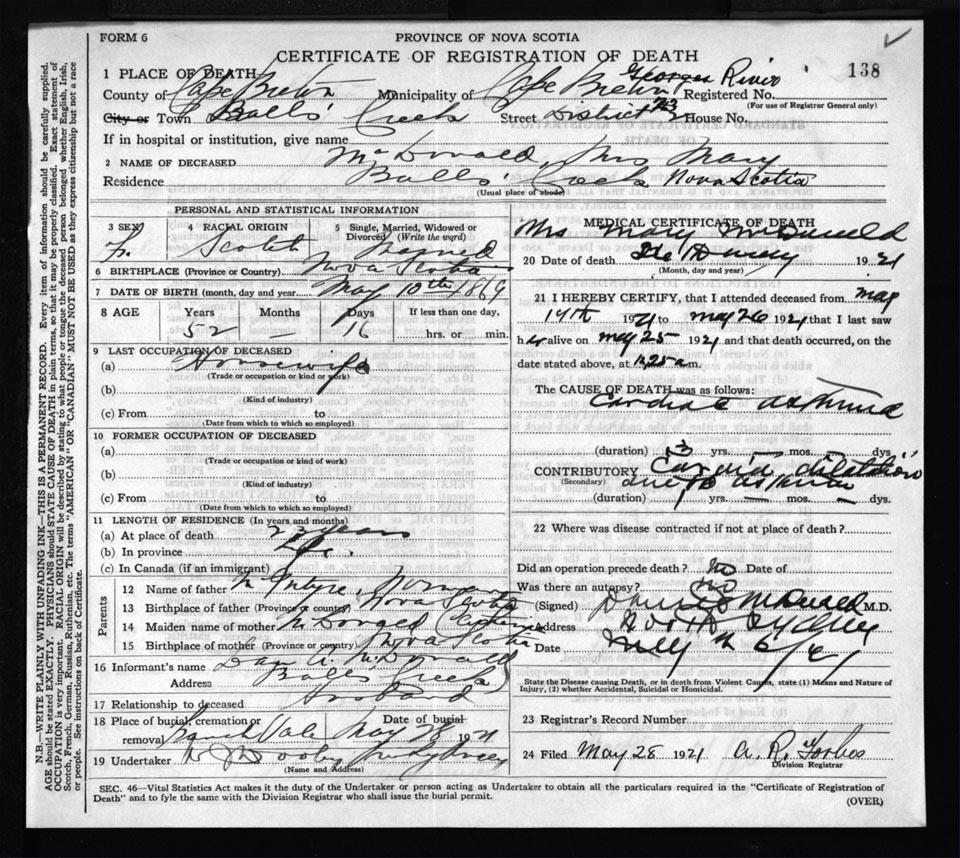 FORM 6
PROVINCE OF NOVA SCOTIA
CERTIFICATE OF REGISTRATION OF DEATH
138
1 PLACE OF DEATH
Georges River
County of Cape Breton Municipality of Cape Breton Registered No.
(For use of Registrar General only)
City or Town Balls' Creek Street District House No.
If in hospital or institution, give name
2 NAME OF DECEASED McDonald, Mrs Mary
Residence Balls' Creek Nova Scotia
(Usual place of abode)
PERSONAL AND STATISTICAL INFORMATION
3 SEX 4 RACIAL ORIGIN 5 Single, Married, Widowed or Divorced (Write the word)
F. Scotch Married
6 BIRTHPLACE (Province or Country) Nova Scotia
7 DATE OF BIRTH (month, day and year) May 10th 1869
8 AGE Years Months Days If less than one day,
52 — 16 hrs. or min.
9 LAST OCCUPATION OF DECEASED
(a) Housewife
(Trade or occupation or kind or work)
(b)
(Kind of industry)
(c) From to
(Date from which to which so employed)
10 FORMER OCCUPATION OF DECEASED
(a)
(Trade or occupation or kind of work)
(b)
(Kind of industry)
(c) From to
(Date from which to which so employed)
11 LENGTH OF RESIDENCE (In years and months)
(a) At place of death 23 years
(b) In province Life.
(c) In Canada (if an immigrant)
Parents
12 Name of father McIntyre,
13 Birthplace of father (Province or country) Nova Scotia
14 Maiden name of mother McDougal
15 Birthplace of mother (Province or country) Nova Scotia
16 Informant's name Dan A. McDonald
Address Balls Creek
17 Relationship to deceased Husband
18 Place of burial, cremation or removal Date of burial
French Vale May 19 21
19 Undertaker
(Name and Address)
MEDICAL CERTIFICATE OF DEATH
Mrs Mary McDonald
20 Date of death 19 21
(Month, day and year)
21 I HEREBY CERTIFY, that I attended deceased from May
19th 1921 to May 26 1921 that I last saw
her alive on May 25 1921 and that death occurred, on
date stated above, at 11,25 a m.
The CAUSE OF DEATH was as follows:
Cardiac asthma
(duration) 3 yrs. mos. dys
CONTRIBUTORY Cardiac dilatation
(Secondary) due to asthma
(duration) yrs. — mos. — dys.
22 Where was disease contracted if not at place of death?
Did an operation precede death? no Date of
Was there an autopsy? no
(Signed) M.D.
Address North Sydney
Date
State the Disease causing Death, or in death from Violent Causes, state (1) Means and Nature of
Injury, (2) whether Accidental, Suicidal or Homicidal.
23 Registrar's Record Number
24 Filed May 28 1921 A. R. Forbes
Division Registrar
SEC. 46—Vital Statistics Act makes it the duty of the Undertaker or person acting as Undertaker to obtain all the particulars required in the "Certificate of Registration of
Death" and to fyle the same with the Division Registrar who shall issue the burial permit.
(OVER)
N.B.—WRITE PLAINLY WITH UNFADING INK—THIS IS A PERMANENT RECORD. Every item of information should be carefully supplied.
AGE should be stated EXACTLY. PHYSICIANS should STATE CAUSE OF DEATH in plain terms, so that it may be properly classified. Exact statement of
OCCUPATION is very important. RACIAL ORIGIN will be described by stating to what people or tongue the deceased person belonged whether English, Irish,
Scotch, French, German, Russian, Ruthenian, etc. The terms "AMERICAN" OR "CANADIAN" MUST NOT BE USED as they express citizenship but not a race
or people. See instructions on back of Certificate.